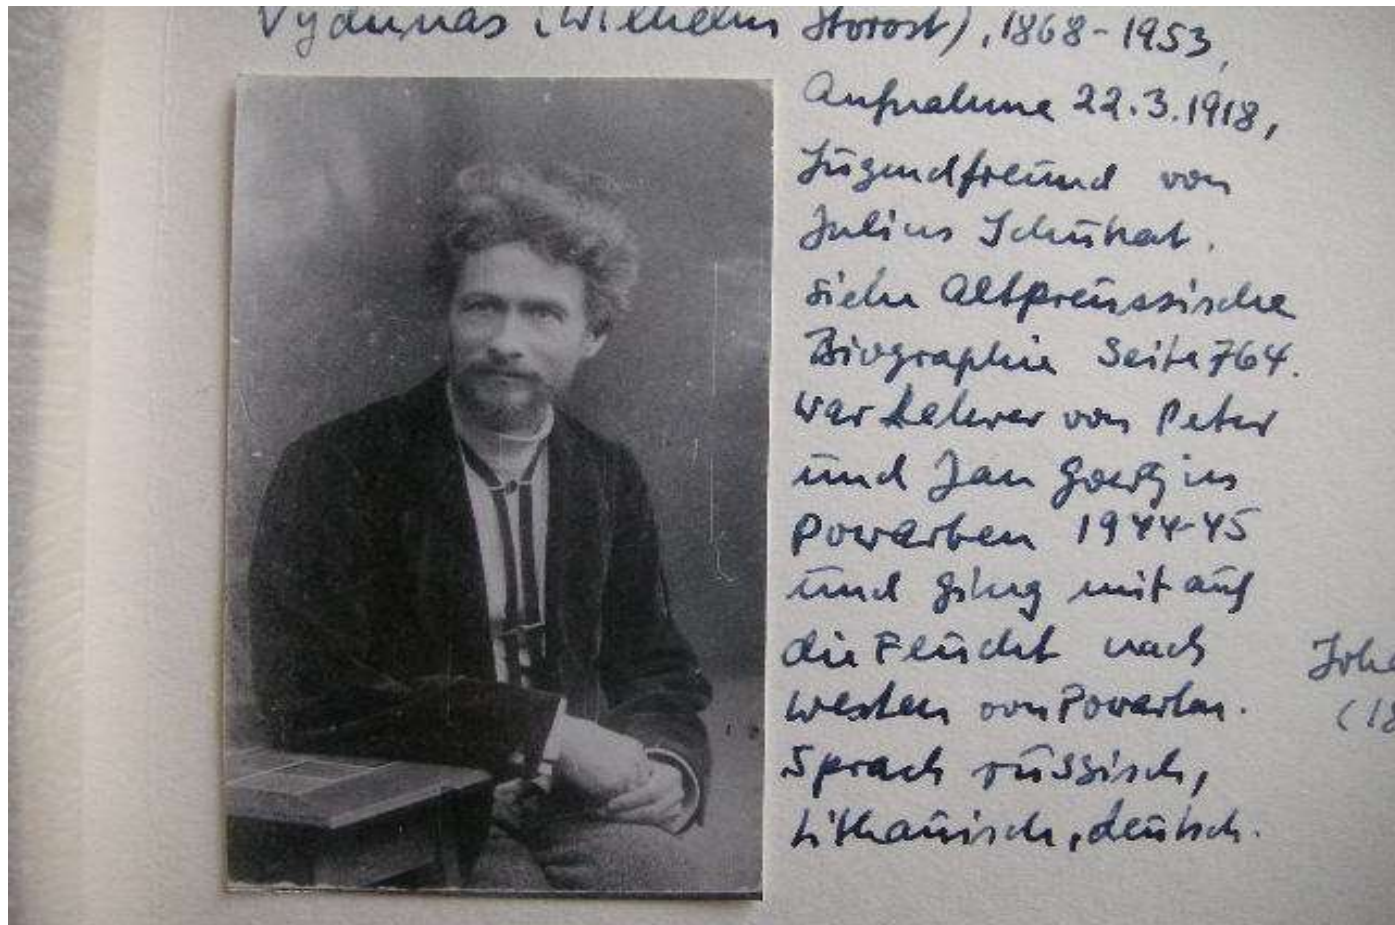 Vydunas (Wilhelm Storost), 1868-1953,
Aufnahme 22.3.1918,
Jugendfreund von
Julius Schukat.
siehe Altpreussische
Biographie Seite 764.
war Lehrer von Peter
und Jan Goertz in
Powarben 1944-45
und ging mit auf
die Flucht nach
Westen von Powarben.
Sprach russisch,
Lithauisch, deutsch.
(18